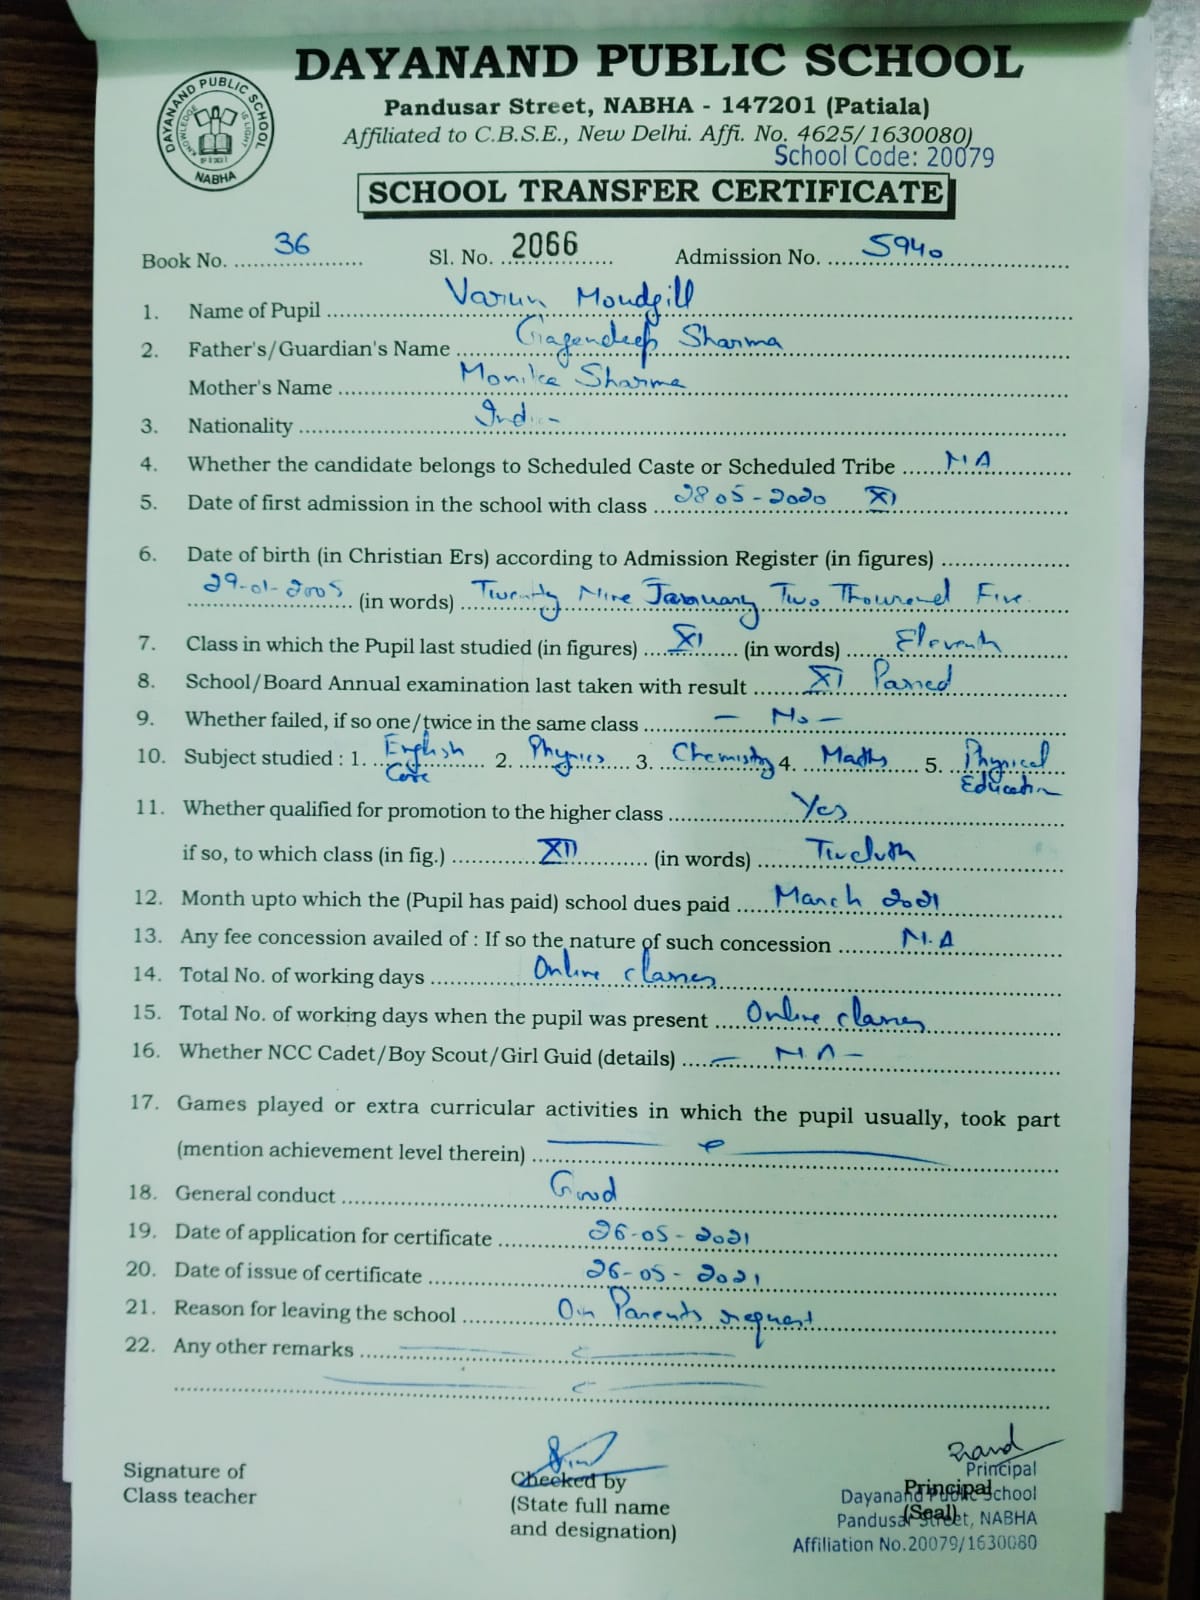 DAYANAND PUBLIC SCHOOL
Pandusar Street, NABHA - 147201 (Patiala)
Affiliated to C.B.S.E., New Delhi. Affi. No. 4625/1630080)
School Code: 20079
DAYANAND PUBLIC SCHOOL
KNOWLEDGE IS LIGHT
NABHA
SCHOOL TRANSFER CERTIFICATE
Book No. 36 Sl. No. 2066 Admission No. 5940
1. Name of Pupil Varun Moudgill
2. Father's/Guardian's Name Gagendeep Sharma
Mother's Name Monika Sharma
3. Nationality
4. Whether the candidate belongs to Scheduled Caste or Scheduled Tribe NA
5. Date of first admission in the school with class 28 05-2020 XI
6. Date of birth (in Christian Ers) according to Admission Register (in figures)
29-01-2005 (in words) Twenty Nine January Two Thousand Five
7. Class in which the Pupil last studied (in figures) XI (in words) Eleventh
8. School/Board Annual examination last taken with result XI Passed
9. Whether failed, if so one/twice in the same class - No -
10. Subject studied : 1. English Core 2. Physics 3. Chemistry 4. Maths 5. Physical Education
11. Whether qualified for promotion to the higher class Yes
if so, to which class (in fig.) XII (in words) Twelvth
12. Month upto which the (Pupil has paid) school dues paid March 2021
13. Any fee concession availed of : If so the nature of such concession N.A
14. Total No. of working days Online classes
15. Total No. of working days when the pupil was present Online classes
16. Whether NCC Cadet/Boy Scout/Girl Guid (details) - N.A -
17. Games played or extra curricular activities in which the pupil usually, took part
(mention achievement level therein)
18. General conduct Good
19. Date of application for certificate 26-05-2021
20. Date of issue of certificate 26-05-2021
21. Reason for leaving the school On Parents request
22. Any other remarks
Signature of
Class teacher
Checked by
(State full name
and designation)
Principal
(Seal)
Principal
Dayanand Public School
Pandusar Street, NABHA
Affiliation No.20079/1630080